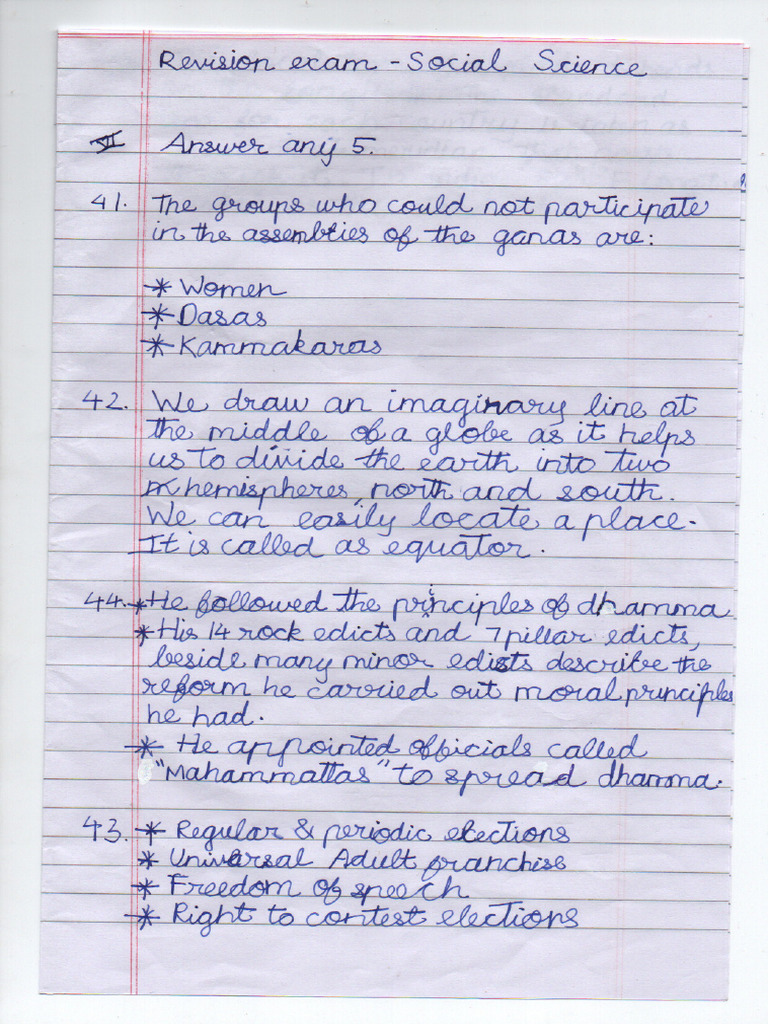 Revision exam - Social Science
VII Answer any 5.
41. The groups who could not participate
in the assemblies of the ganas are:
* Women
* Dasas
* Kammakaras
42. We draw an imaginary line at
the middle of a globe as it helps
us to divide the earth into two
hemispheres, north and south.
We can easily locate a place.
It is called as equator.
44. * He followed the principles of dhamma
* His 14 rock edicts and 7 pillar edicts,
beside many minor edists describe the
reform he carried out moral principles
he had.
* He appointed officials called
"Mahammattas" to spread dhamma.
43. * Regular & periodic elections
* Universal Adult franchise
* Freedom of speech
* Right to contest elections